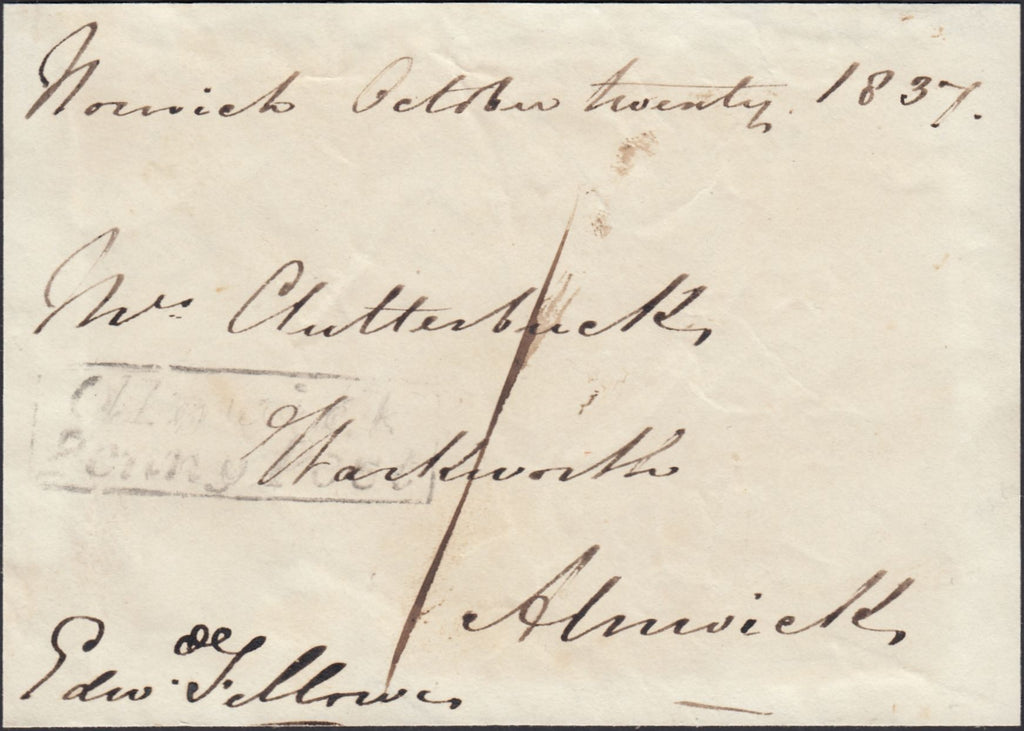 Norwich October twenty 1837.
Mrs. Clutterbuck,
Alnwick
Penny Post
Warkworth
Alnwick,
Edw. Fellowes